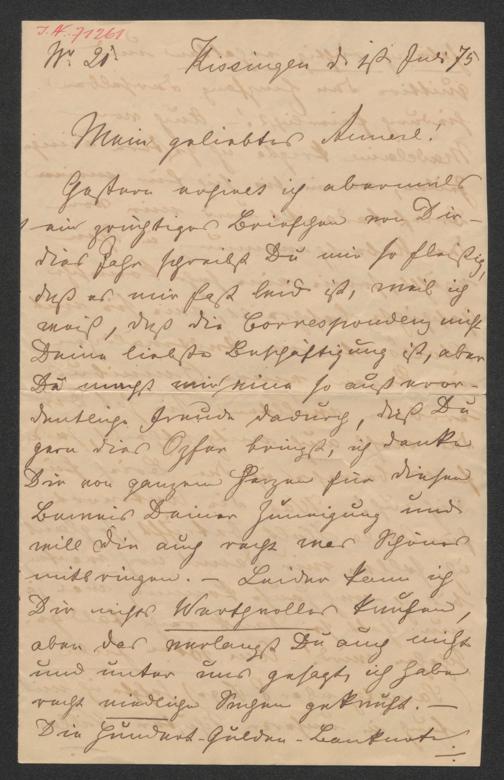 I.N. 71261
Nr. 21. Kissingen d. 1st Juli 75
Mein geliebtes Annerl!
Gestern erhielt ich abermals
ein Briefchen von Dir –
dies Jahr schreibst Du mir so fleißig,
daß es mir fast leid ist, weil ich
weiß, daß die Correspondenz nicht
Deine liebste Beschäftigung ist, aber
Du machst mir eine so außeror-
dentliche Freude dadurch, daß Du
gern dies Opfer bringst, ich danke
Dir von ganzem Herzen für diesen
Beweis Deiner Zuneigung und
will Dir auch recht was Schönes
mitbringen. – Leider kann ich
Dir nichts Werthvolles kaufen,
aber das verlangst Du auch nicht
und unter uns gesagt, ich habe
recht niedliche Sachen gekauft. –
Die Hundert-Gulden-Banknote